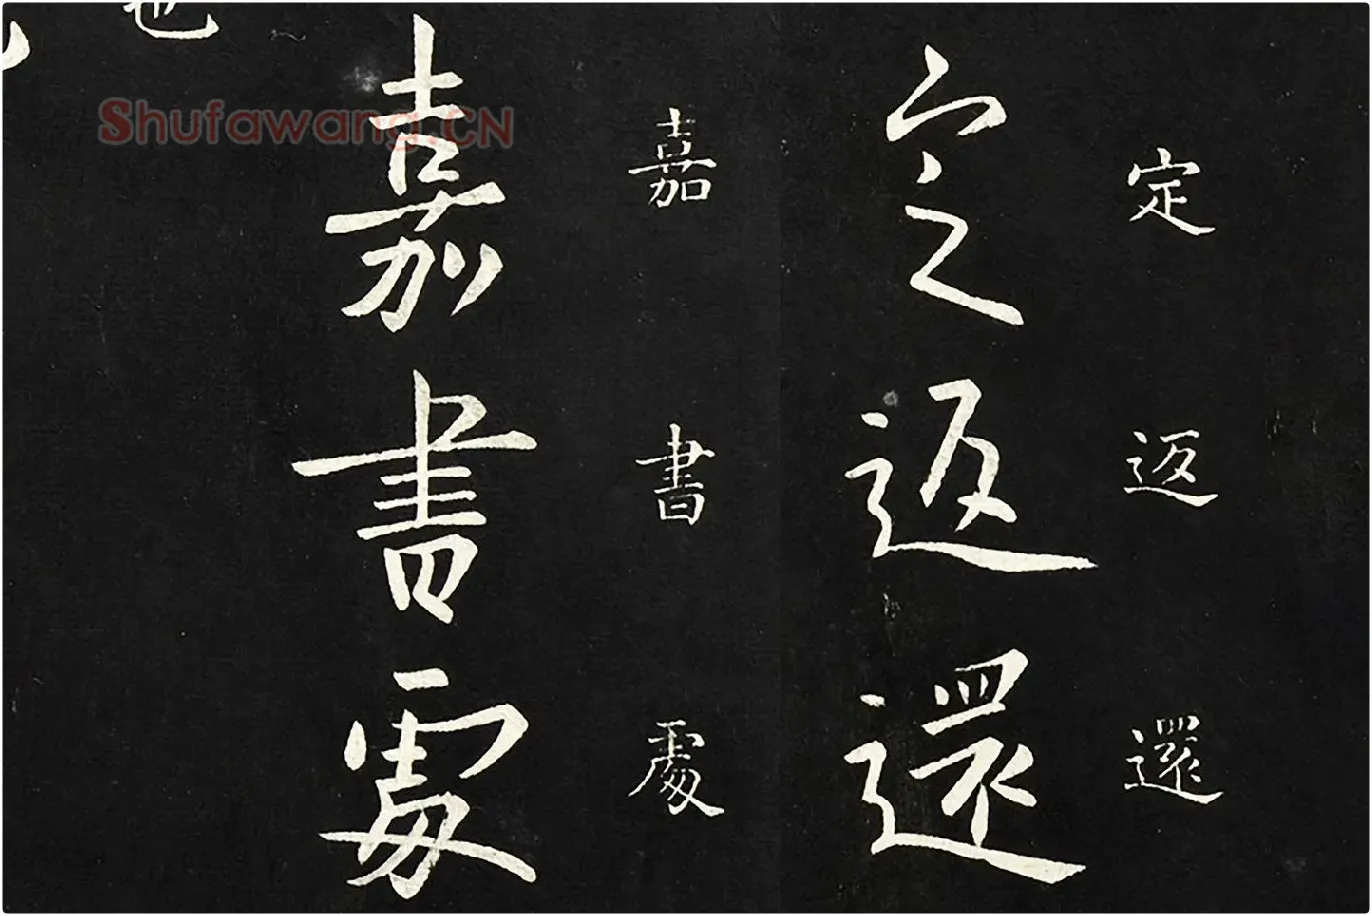 定返還
定返還
嘉書處
嘉書處
Shufawang.CN